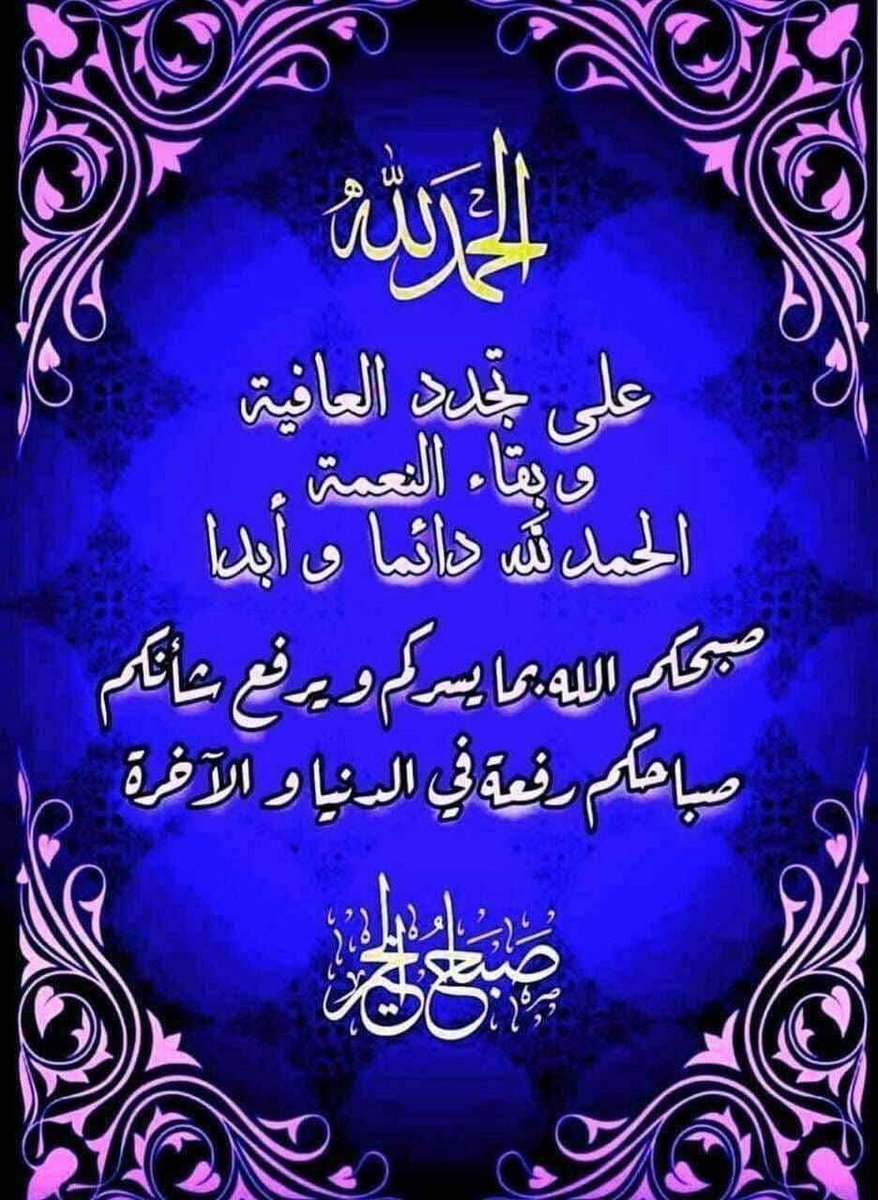 الحمد لله
على تجدد العافية
وبقاء النعمة
الحمد لله دائما و أبدا
صبحكم الله بما يسركم ويرفع شأنكم
صباحكم رفعة في الدنيا و الآخرة
صباح الخير